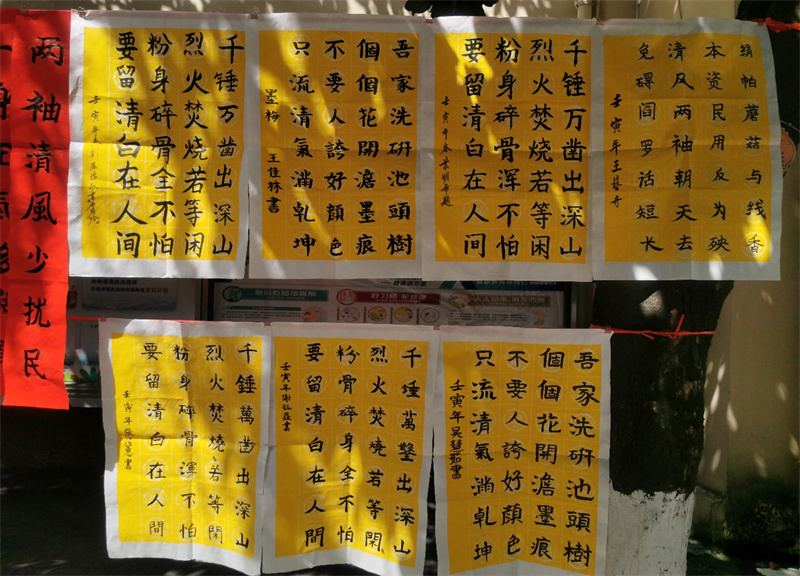 两袖清風少扰民
千锤万凿出深山
烈火焚烧若等闲
粉身碎骨全不怕
要留清白在人间
壬寅年
吾家洗研池頭樹
個個花開澹墨痕
不要人誇好顔色
只流清氣滿乾坤
墨梅 王佳林書
千锤万凿出深山
烈火焚烧若等闲
粉身碎骨浑不怕
要留清白在人间
壬寅年春葉明舟題
绢帕蘑菇与线香
本资民用反为殃
清风两袖朝天去
免碍阎罗话短长
壬寅年王藝奇
千錘萬凿出深山
烈火焚燒若等閑
粉身碎骨渾不怕
要留清白在人間
壬寅年
千埵萬鑿出深山
烈火焚燒若等閑
粉骨碎身全不怕
要留清白在人間
壬寅年
吾家洗研池頭樹
個個花開澹墨痕
不要人誇好顔色
只流清氣滿乾坤
壬寅年吴